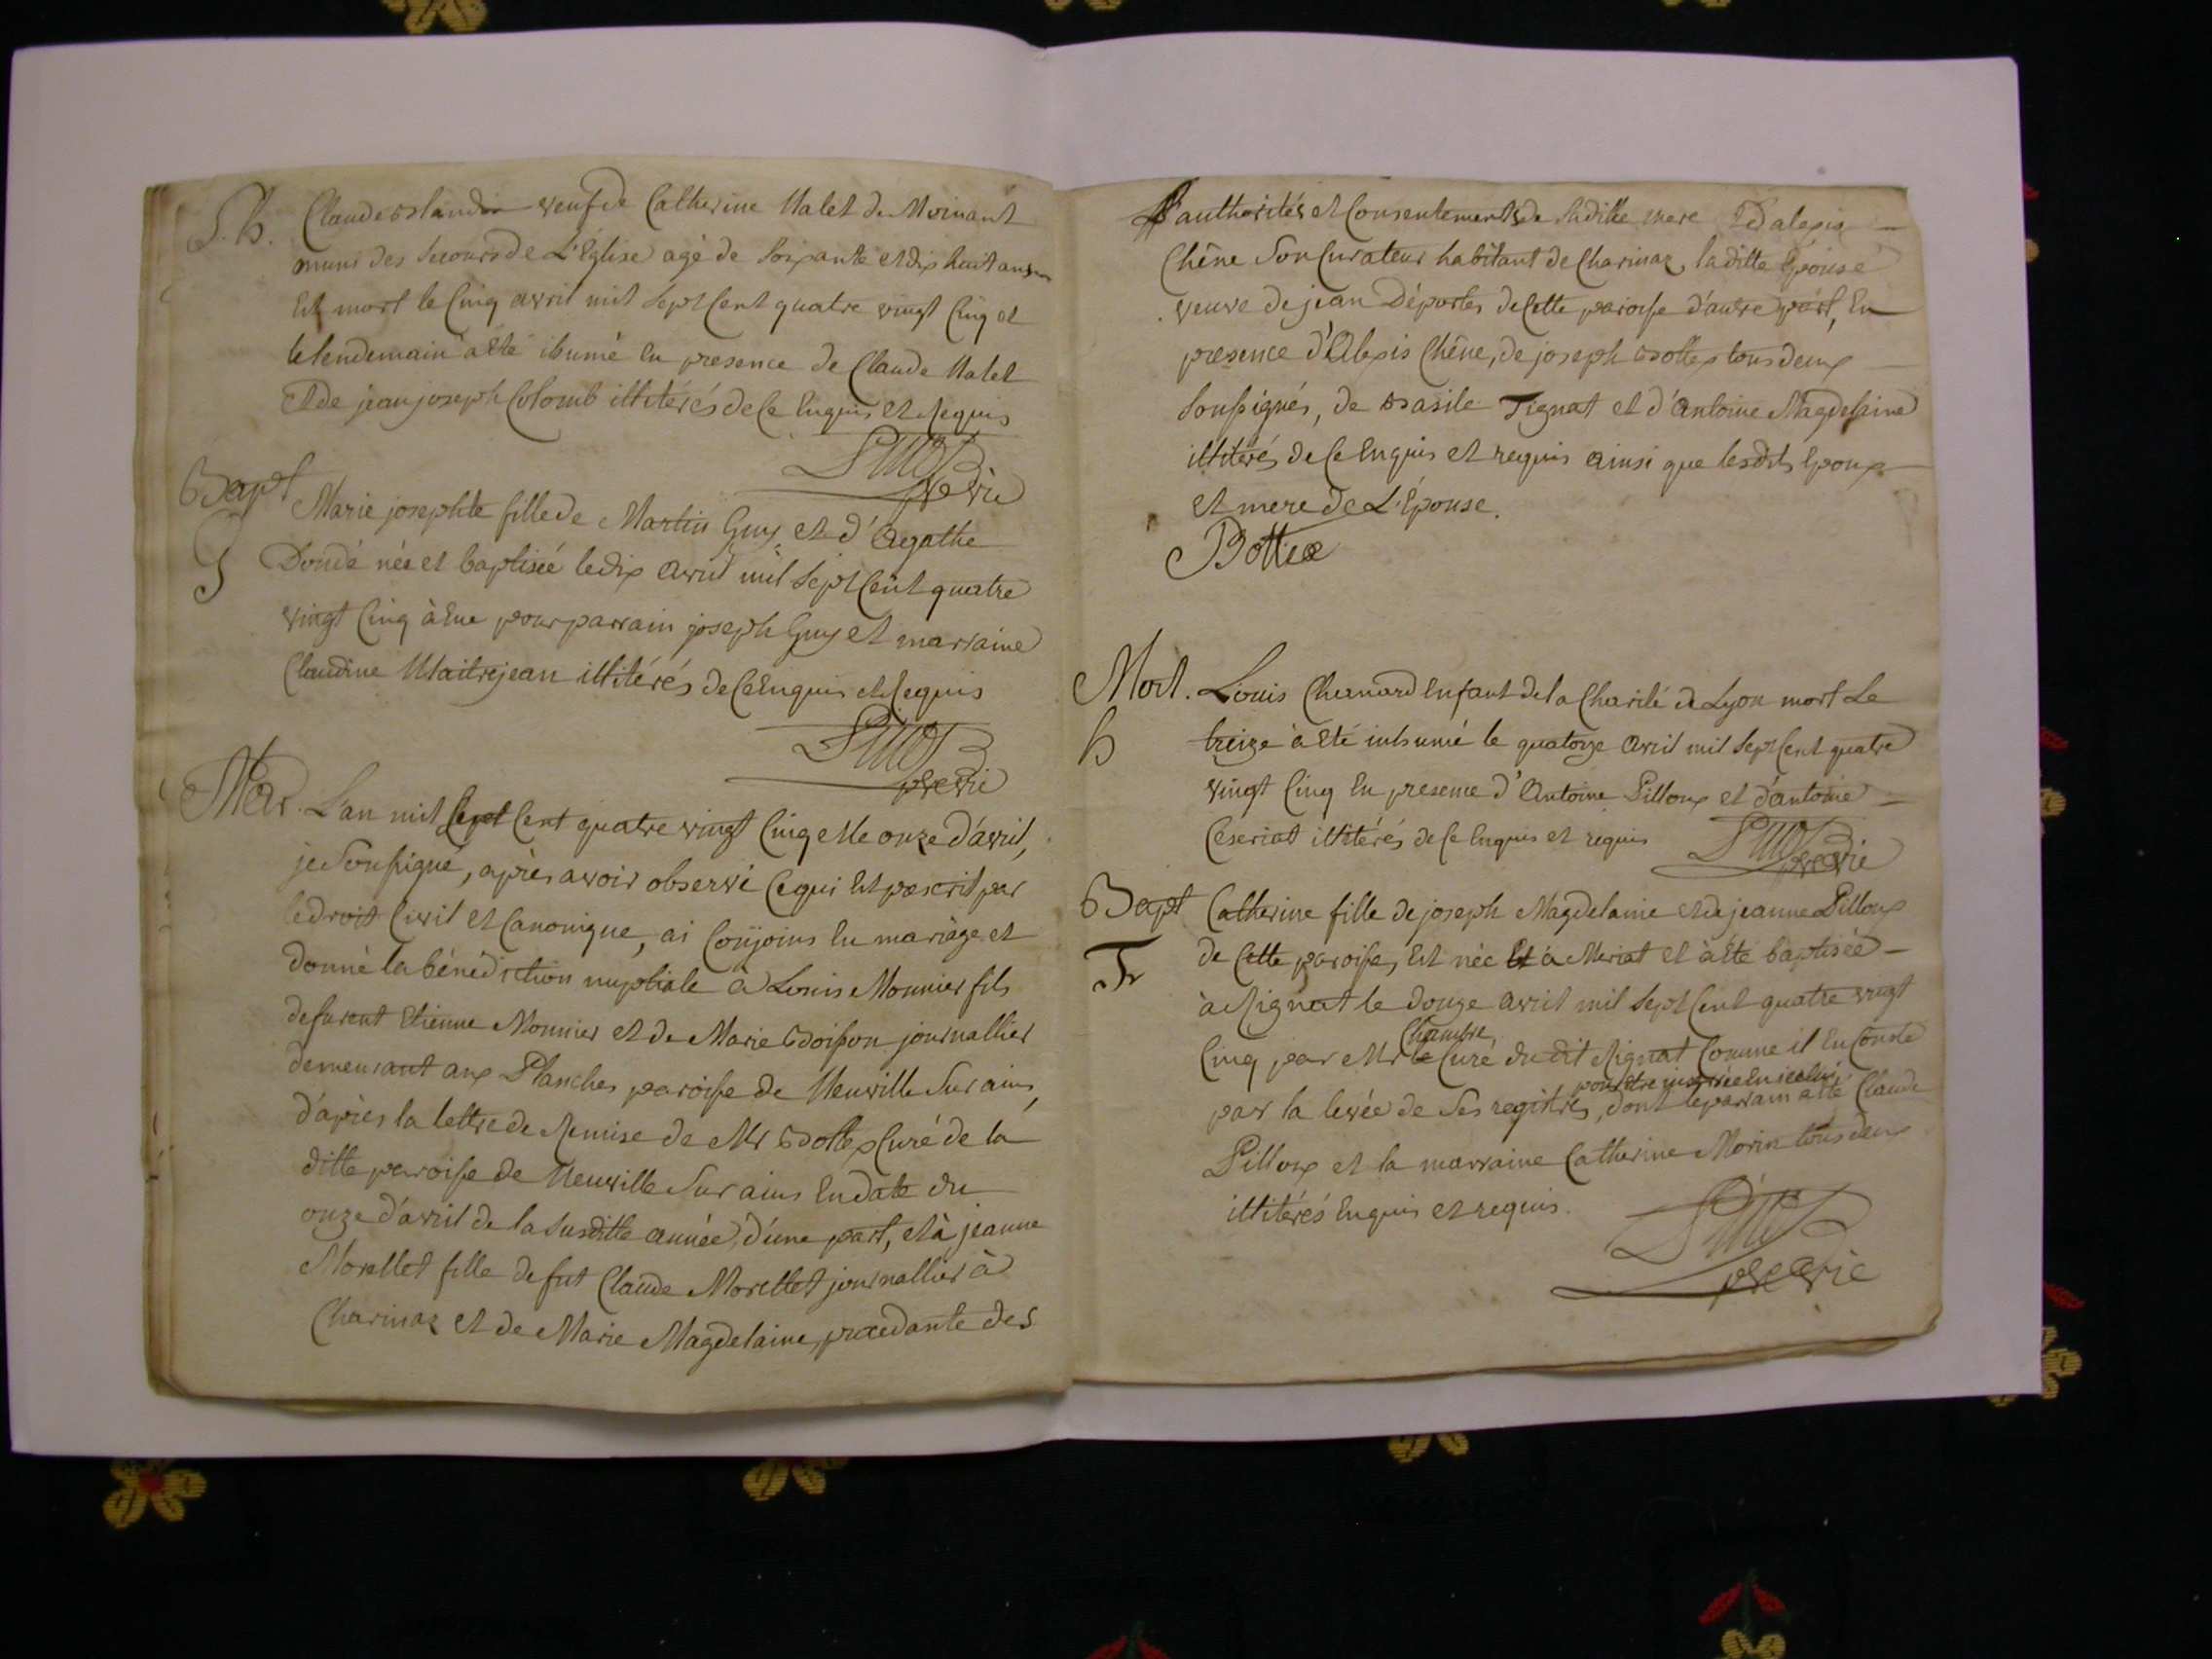 S. h. Claude Blandin veuf de Catherine Valet de Moinant
muni des secours de L'Église agé de soixante et dix huit ans
Est mort le Cinq avril mil sept Cent quatre vingt Cinq et
le lendemain a Eté ihumé En presence de Claude Valet
Et de jean joseph Colomb illitérés de Ce Enquis et Requis
Bapt Marie josephte fille de Martin Guy et d'Agathe
Doudé née et baptisée le dix avril mil sept Cent quatre
vingt Cinq à Eue pour parrain joseph Guy et marraine
Claudine Maitrejean illitérés de Ce Enquis et Requis
Mar. L'an mil Sept Cent quatre vingt Cinq et le onze d'avril,
je soussigné, après avoir observé Ce qui Est prescrit par
le droit Civil et Canonique, ai Conjoins En mariage et
donné la bénédiction nuptiale à Louis Monnier fils
defurent Etienne Monnier et de Marie Boisson journallier
demeurant aux Planches paroisse de Neuville sur ains,
d'après la lettre de Remise de Mr Bottex Curé de la
ditte paroisse de Neuville sur ains En date du
onze d'avril de la susditte année, d'une part, et à jeanne
Morellet fille de fut Claude Morellet journallier à
Charinaz et de Marie Magdelaine, procedante des
authorités et Consentements de sa ditte mere Et d'alexis
Chêne son Curateur habitant de Charinaz, la ditte Epouse
veuve de jean Déportes de Cette paroisse d'autre part, En
presence d'Alexis Chêne, de joseph Bottex tous deux
soussignés, de Basile Tignat et d'Antoine Magdelaine
illitérés de Ce Enquis et requis ainsi que lesdits Epoux
et mere de L'Epouse.
Bottex
Mort. Louis Chanard Enfant de la Charité de Lyon mort Le
h treize à Eté inhumé le quatorze avril mil sept Cent quatre
vingt Cinq En presence d'Antoine Pilloux et d'antoine
Ceseriat illitérés de Ce Enquis et requis
Bapt Catherine fille de joseph Magdelaine et de jeanne Pilloux
de Cette paroisse, Est née à Meriat et à Eté baptisée
à Rignat le douze avril mil sept Cent quatre vingt
Chambre,
Cinq par Mr le Curé dudit Rignat Comme il En Conste
pour Etre inserée En icelui,
par la levée de ses registres, dont le parrain a Eté Claude
Pilloux et la marraine Catherine Morin tous deux
illitérés Enquis et requis.